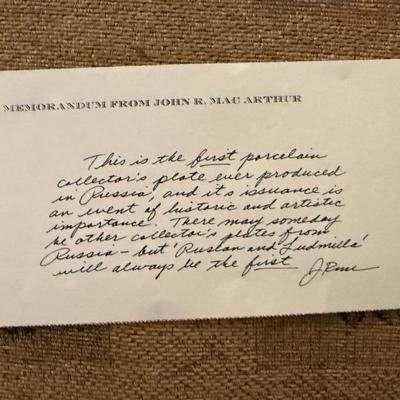 MEMORANDUM FROM JOHN R. MAC ARTHUR
This is the first porcelain
collector's plate ever produced
in Russia, and it's issuance is
an event of historic and artistic
importance. There may someday
be other collector's plates from
Russia – but 'Ruslan and Ludmilla'
will always be the first
JRM